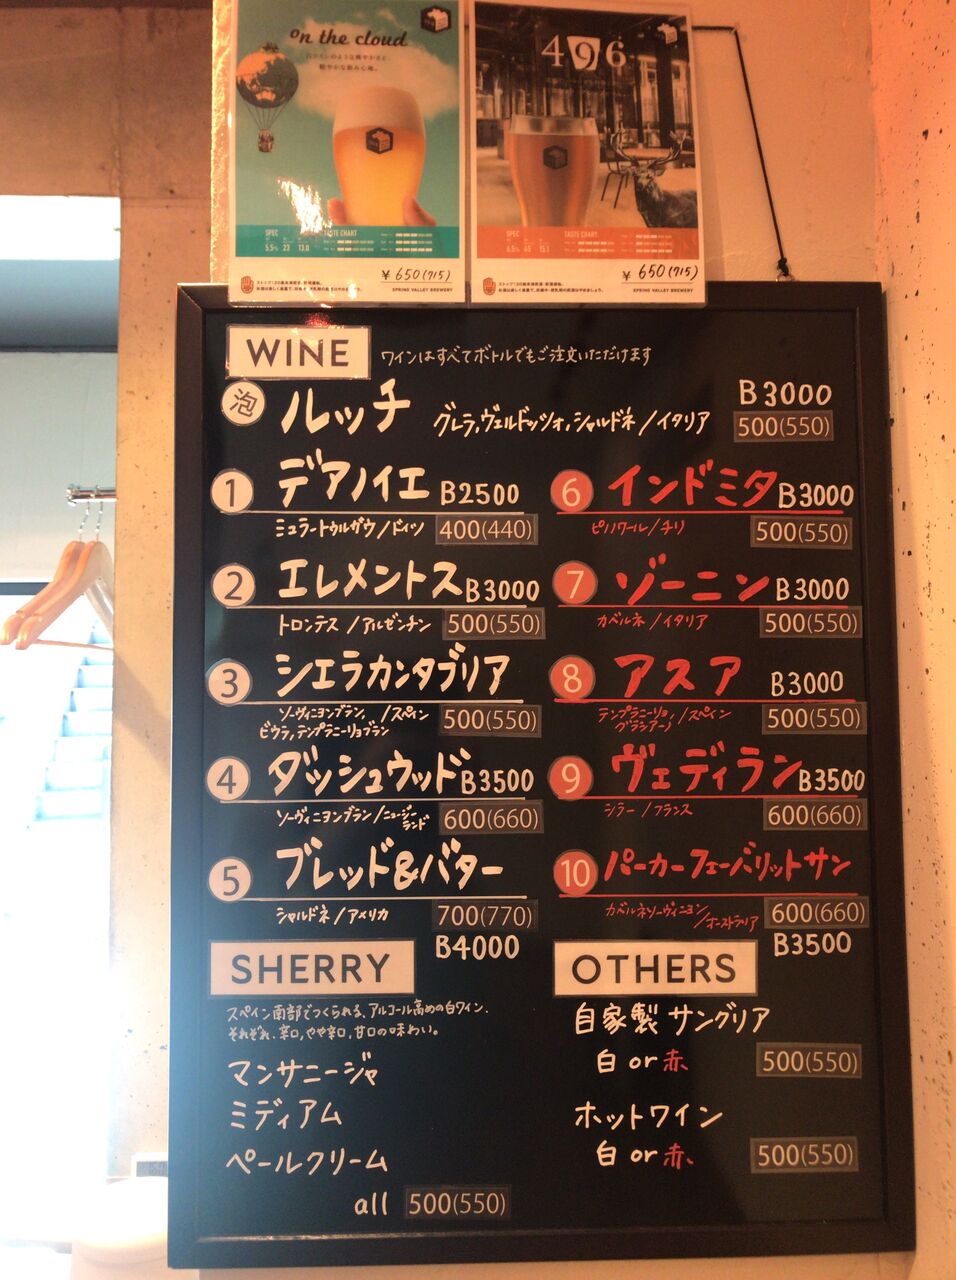 on the cloud
496
SPEC
TASTE CHART
5.5% 23 13.0
¥650(715)
SPRING VALLEY BREWERY
SPEC
TASTE CHART
6.5% 45 15.1
¥650(715)
SPRING VALLEY BREWERY
WINE
ワインはすべてボトルでもご注文いただけます
泡 ルッチ B3000
グレラ,ヴェルドッツォ,シャルドネ/イタリア 500(550)
1 デアノイエ B2500
ミュラートゥルガウ/ドイツ 400(440)
2 エレメントス B3000
トロンテス/アルゼンチン 500(550)
3 シエラカンタブリア
ソーヴィニヨンブラン, /スペイン 500(550)
ビウラ,テンプラニーリョブラン
4 ダッシュウッド B3500
ソーヴィニヨンブラン/ニュージーランド 600(660)
5 ブレッド&バター
シャルドネ/アメリカ 700(770)
B4000
6 インドミタ B3000
ピノノワール/チリ 500(550)
7 ゾーニン B3000
カベルネ/イタリア 500(550)
8 アスア B3000
テンプラニーリョ, /スペイン 500(550)
グラシアーノ
9 ヴェディラン B3500
シラー/フランス 600(660)
10 パーカーフェーバリットサン
カベルネソーヴィニヨン/オーストラリア 600(660)
B3500
SHERRY
スペイン南部でつくられる、アルコール高めの白ワイン.
それぞれ、辛口,やや辛口,甘口の味わい。
マンサニージャ
ミディアム
ペールクリーム
all 500(550)
OTHERS
自家製サングリア
白 or 赤 500(550)
ホットワイン
白 or 赤 500(550)